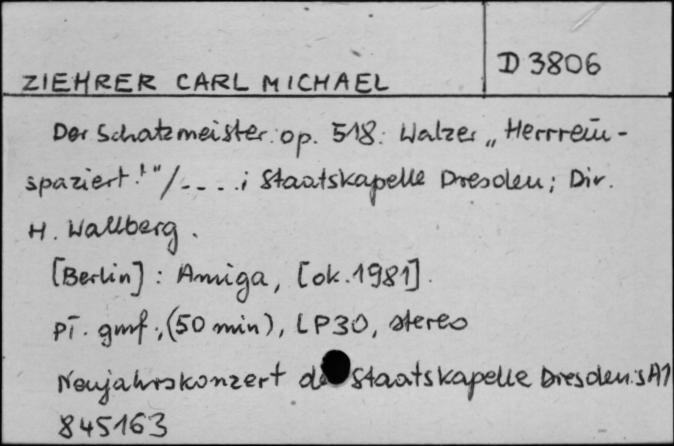 D 3806
ZIEHRER CARL MICHAEL
Der Schatzmeister. op. 518. Walzer „Herrrein-
spaziert!"/_ _ _ _ ; Staatskapelle Dresden; Dir.
H. Wallberg.
[Berlin] : Amiga, [ok. 1981].
pł. gmf., (50 min), LP30, stereo
Neujahrskonzert der Staatskapelle Dresden. sA1
845163